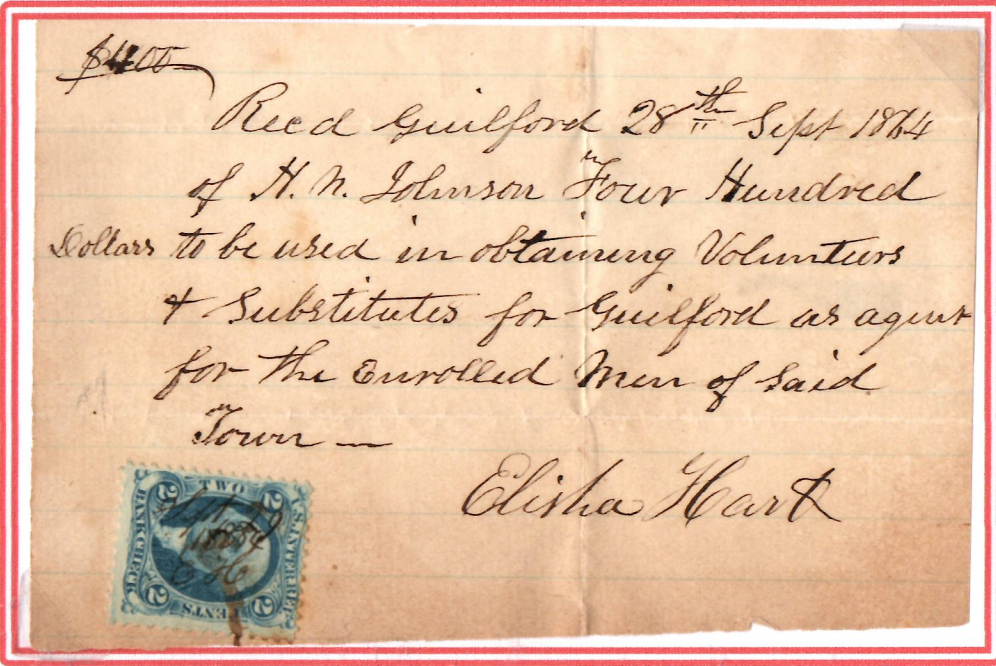 $400
Recd Guilford 28th Sept 1864
of H. N. Johnson Four Hundred
Dollars to be used in obtaining Volunteers
& Substitutes for Guilford as agent
for the Enrolled Men of said
Town —
Elisha Hart
TWO
BANK CHECK
U.S. INTER. REV.
CENTS
2 2 2 2
Sept
1864
E H